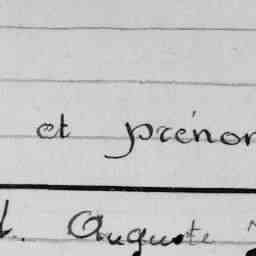 et prénom
Auguste